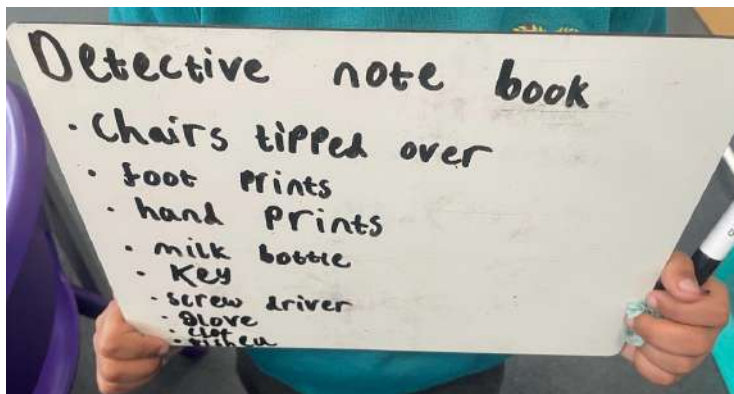 Detective note book
· Chairs tipped over
· foot prints
· hand prints
· milk bottle
· Key
· screw driver
· glove